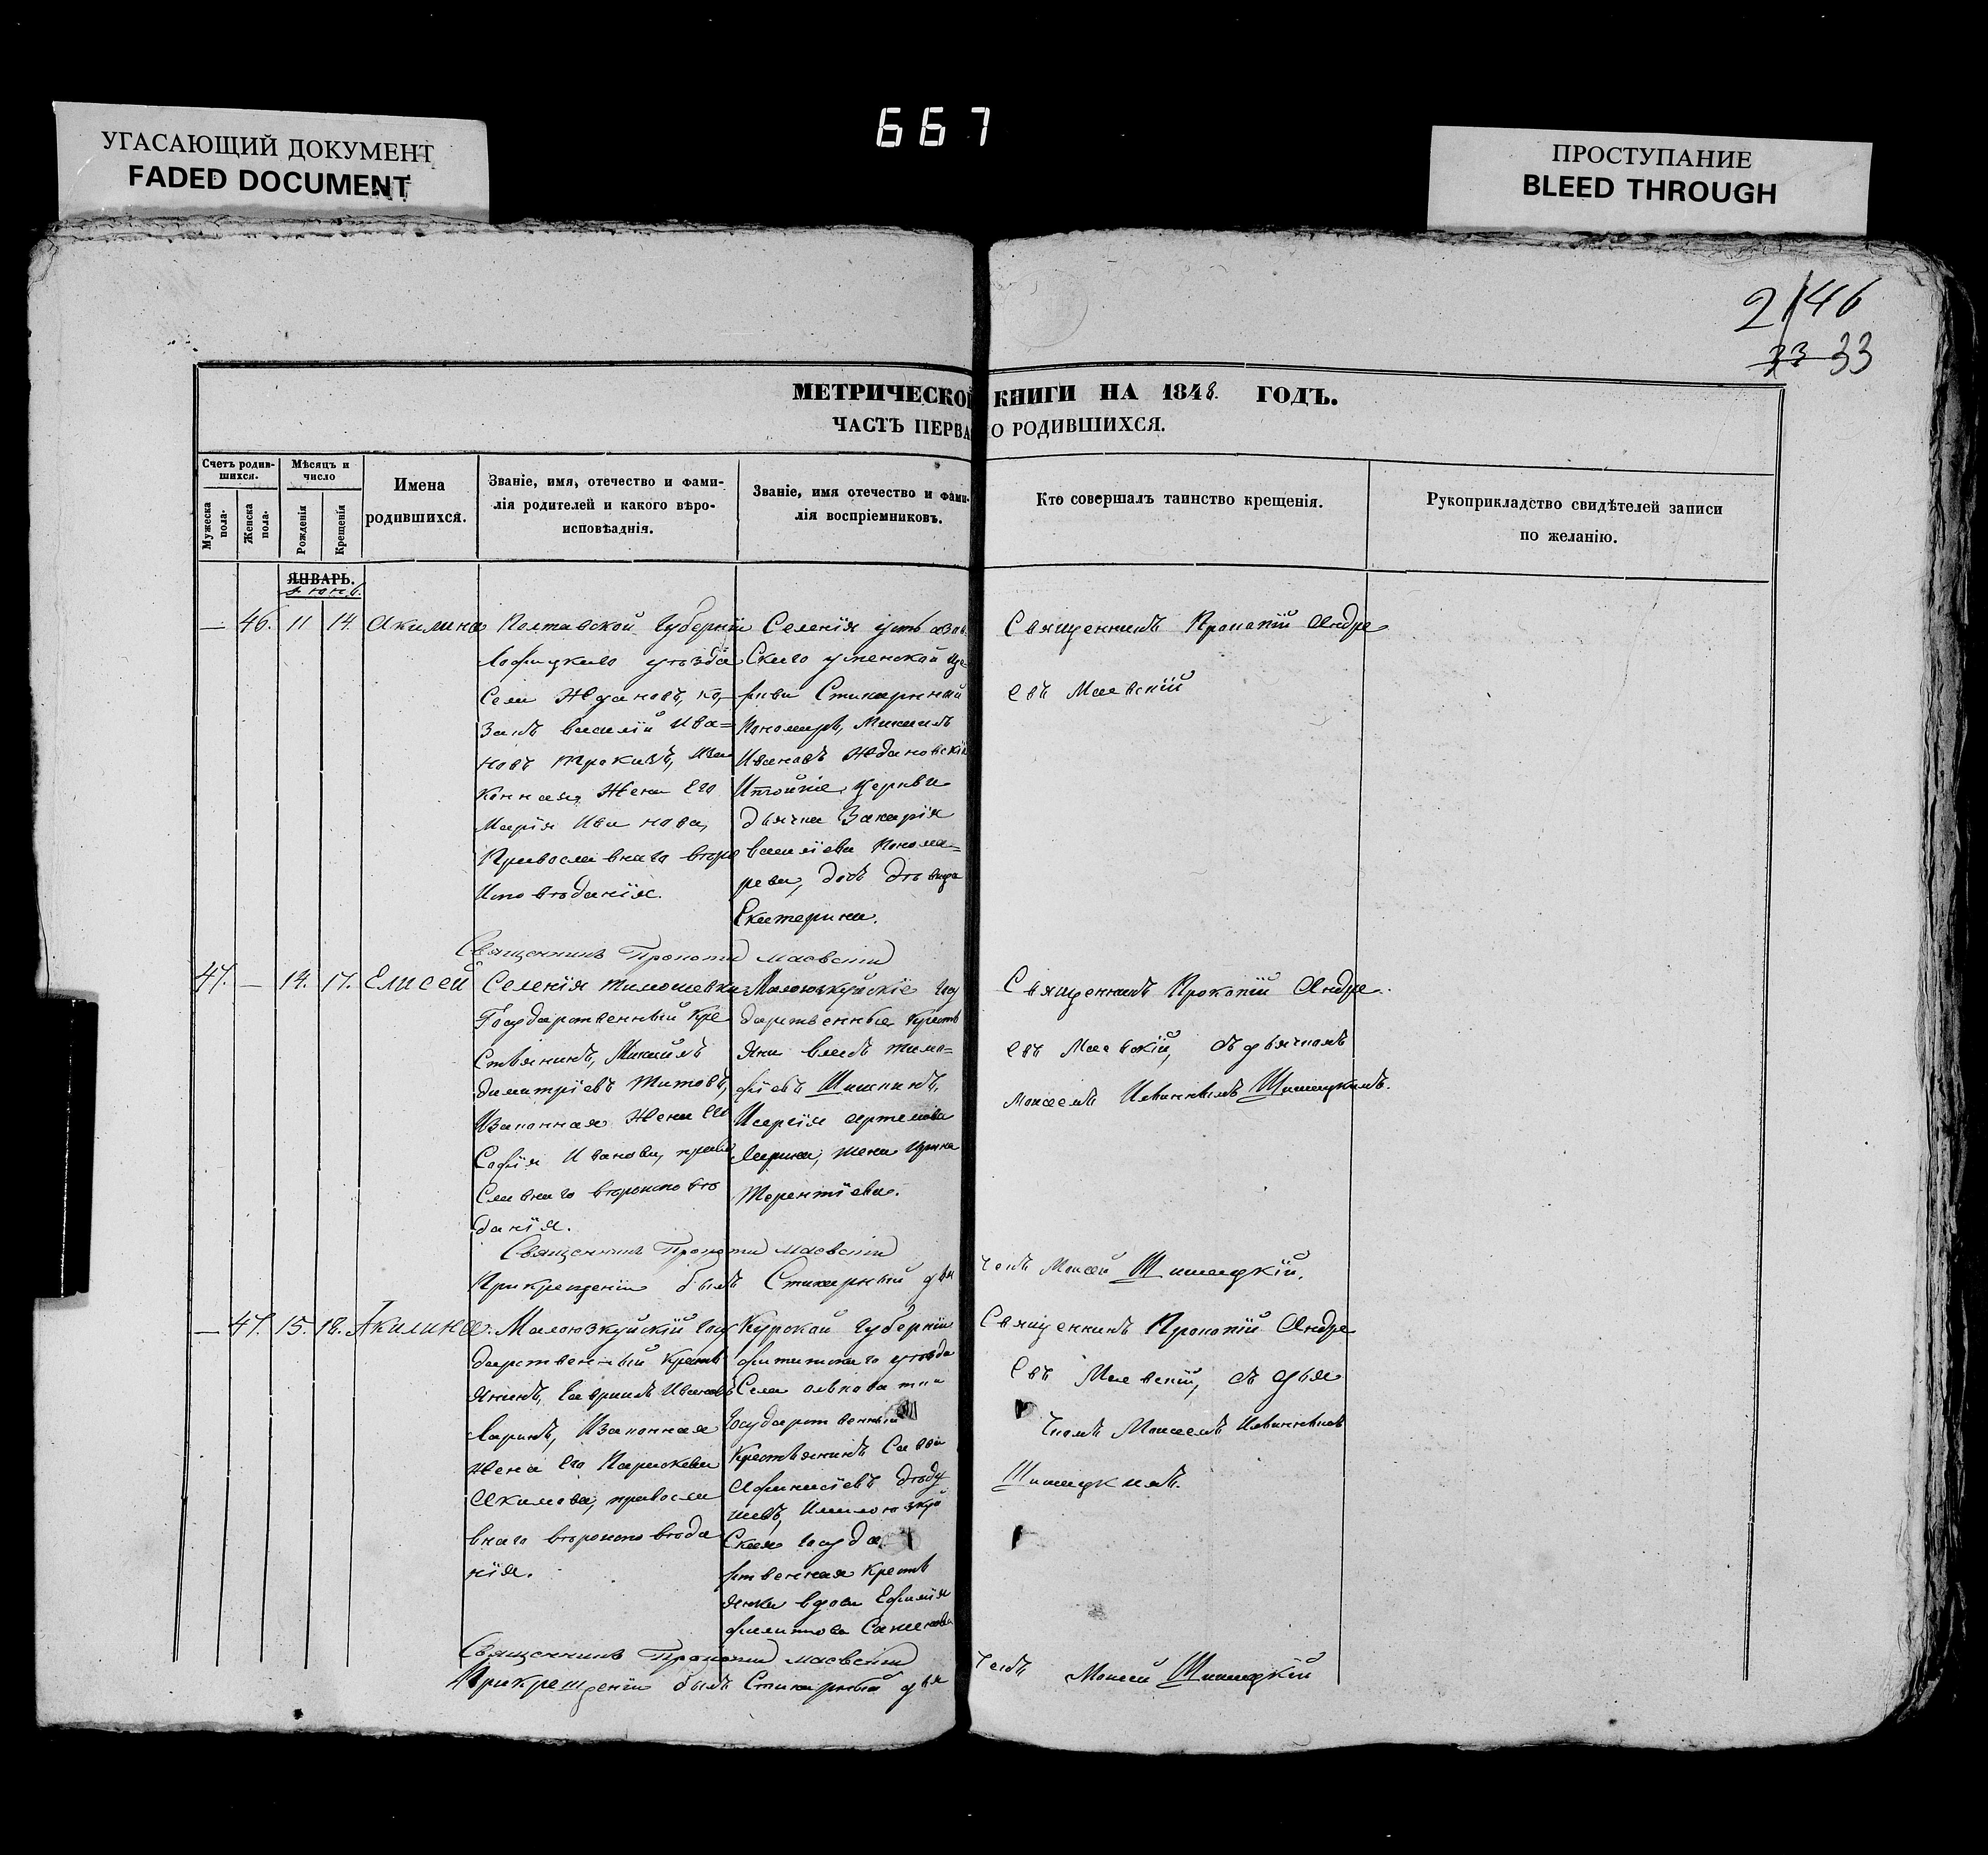 УГАСАЮЩИЙ ДОКУМЕНТ
FADED DOCUMENT
667
ПРОСТУПАНИЕ
BLEED THROUGH
2146
33 33
МЕТРИЧЕСКОЙ КНИГИ НА 1848. ГОДЪ.
ЧАСТЬ ПЕРВА О РОДИВШИХСЯ.
Счетъ родив-
шихся.
Мужеска
пола.
Женска
пола.
Мѣсяцъ и
число
Рожденія
Крещенія
Имена
родившихся.
Званіе, имя, отечество и фами-
лія родителей и какого вѣро-
исповѣаднія.
Званіе, имя отечество и фами-
лія воспріемниковъ.
Кто совершалъ таинство крещенія.
Рукоприкладство свидѣтелей записи
по желанію.
ЯНВАРЬ.
— 46. 11 14. Акилина
Полтавской Губерніи
уѣзда
Села Ждановъ, ко
закъ Василій Ива=
новъ
конная Жена Его
Марія Иванова,
Православнаго вѣро
исповѣданія.
Селенія
Скаго
ркви Стихарный
Пономарь, Михаилъ
Ивановъ Ждановскій
Церкви
дьячка Захарія
Василіева Понома=
рева, дочь дѣвица
Екатерина.
Священникъ Прокопій Андре
евъ Маевскій
Священникъ Прокопій Маевскій
47. — 14. 17. Елисей
Селенія Тимошевки
Государственный Кре
стьянинъ, Михаилъ
Димитріевъ Титовъ,
Изаконная Жена Его
Софія Иванова, право
славнаго вѣроисповѣ
данія.
Малоюзкуйскіе Госу
дарственные Кресть
яне Тимо=
фіевъ Шишкинъ,
Имарія Артемова
Ларина, жена Ирина
Терентіева.
Священникъ Прокопій Андре
евъ Маевскій, съ дьячкомъ
Моисеемъ Шишацкимъ.
Священникъ Прокопій Маевскій
При крещеніи былъ Стихарный дья
чекъ Моисей Шишацкій.
— 47. 15. 18. Акилина.
Малоюзкуйскій Госу
дарственный Кресть
янинъ, Гавріилъ Ивановъ
Ларинъ, Изаконная
Жена Его Параскева
Акимова, правосла
внаго вѣроисповѣда
нія.
Курской Губерніи
уѣзда
Села
Государственный
Крестьянинъ Савва
Афанасіевъ
Имал­оюзкуй
Ская Госуда
рственная Кресть
янка вдова Ефимія
Филиппова
Священникъ Прокопій Андре
евъ Маевскій, съ дья
чкомъ Моисеемъ
Шишацкимъ.
Священникъ Прокопій Маевскій
При крещеніи былъ Стихарный дья
чекъ Моисей Шишацкій